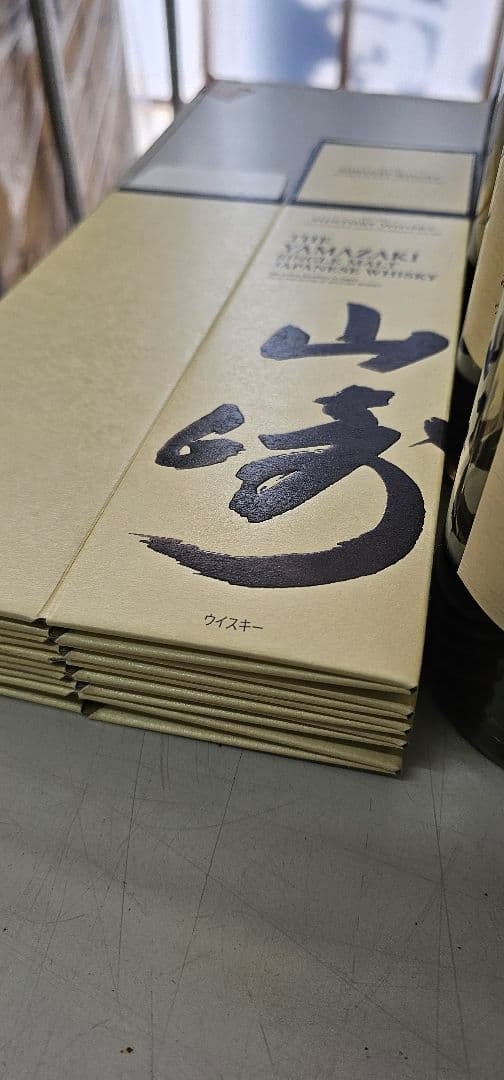 THE
YAMAZAKI
SINGLE MALT
JAPANESE WHISKY
山崎
ウイスキー